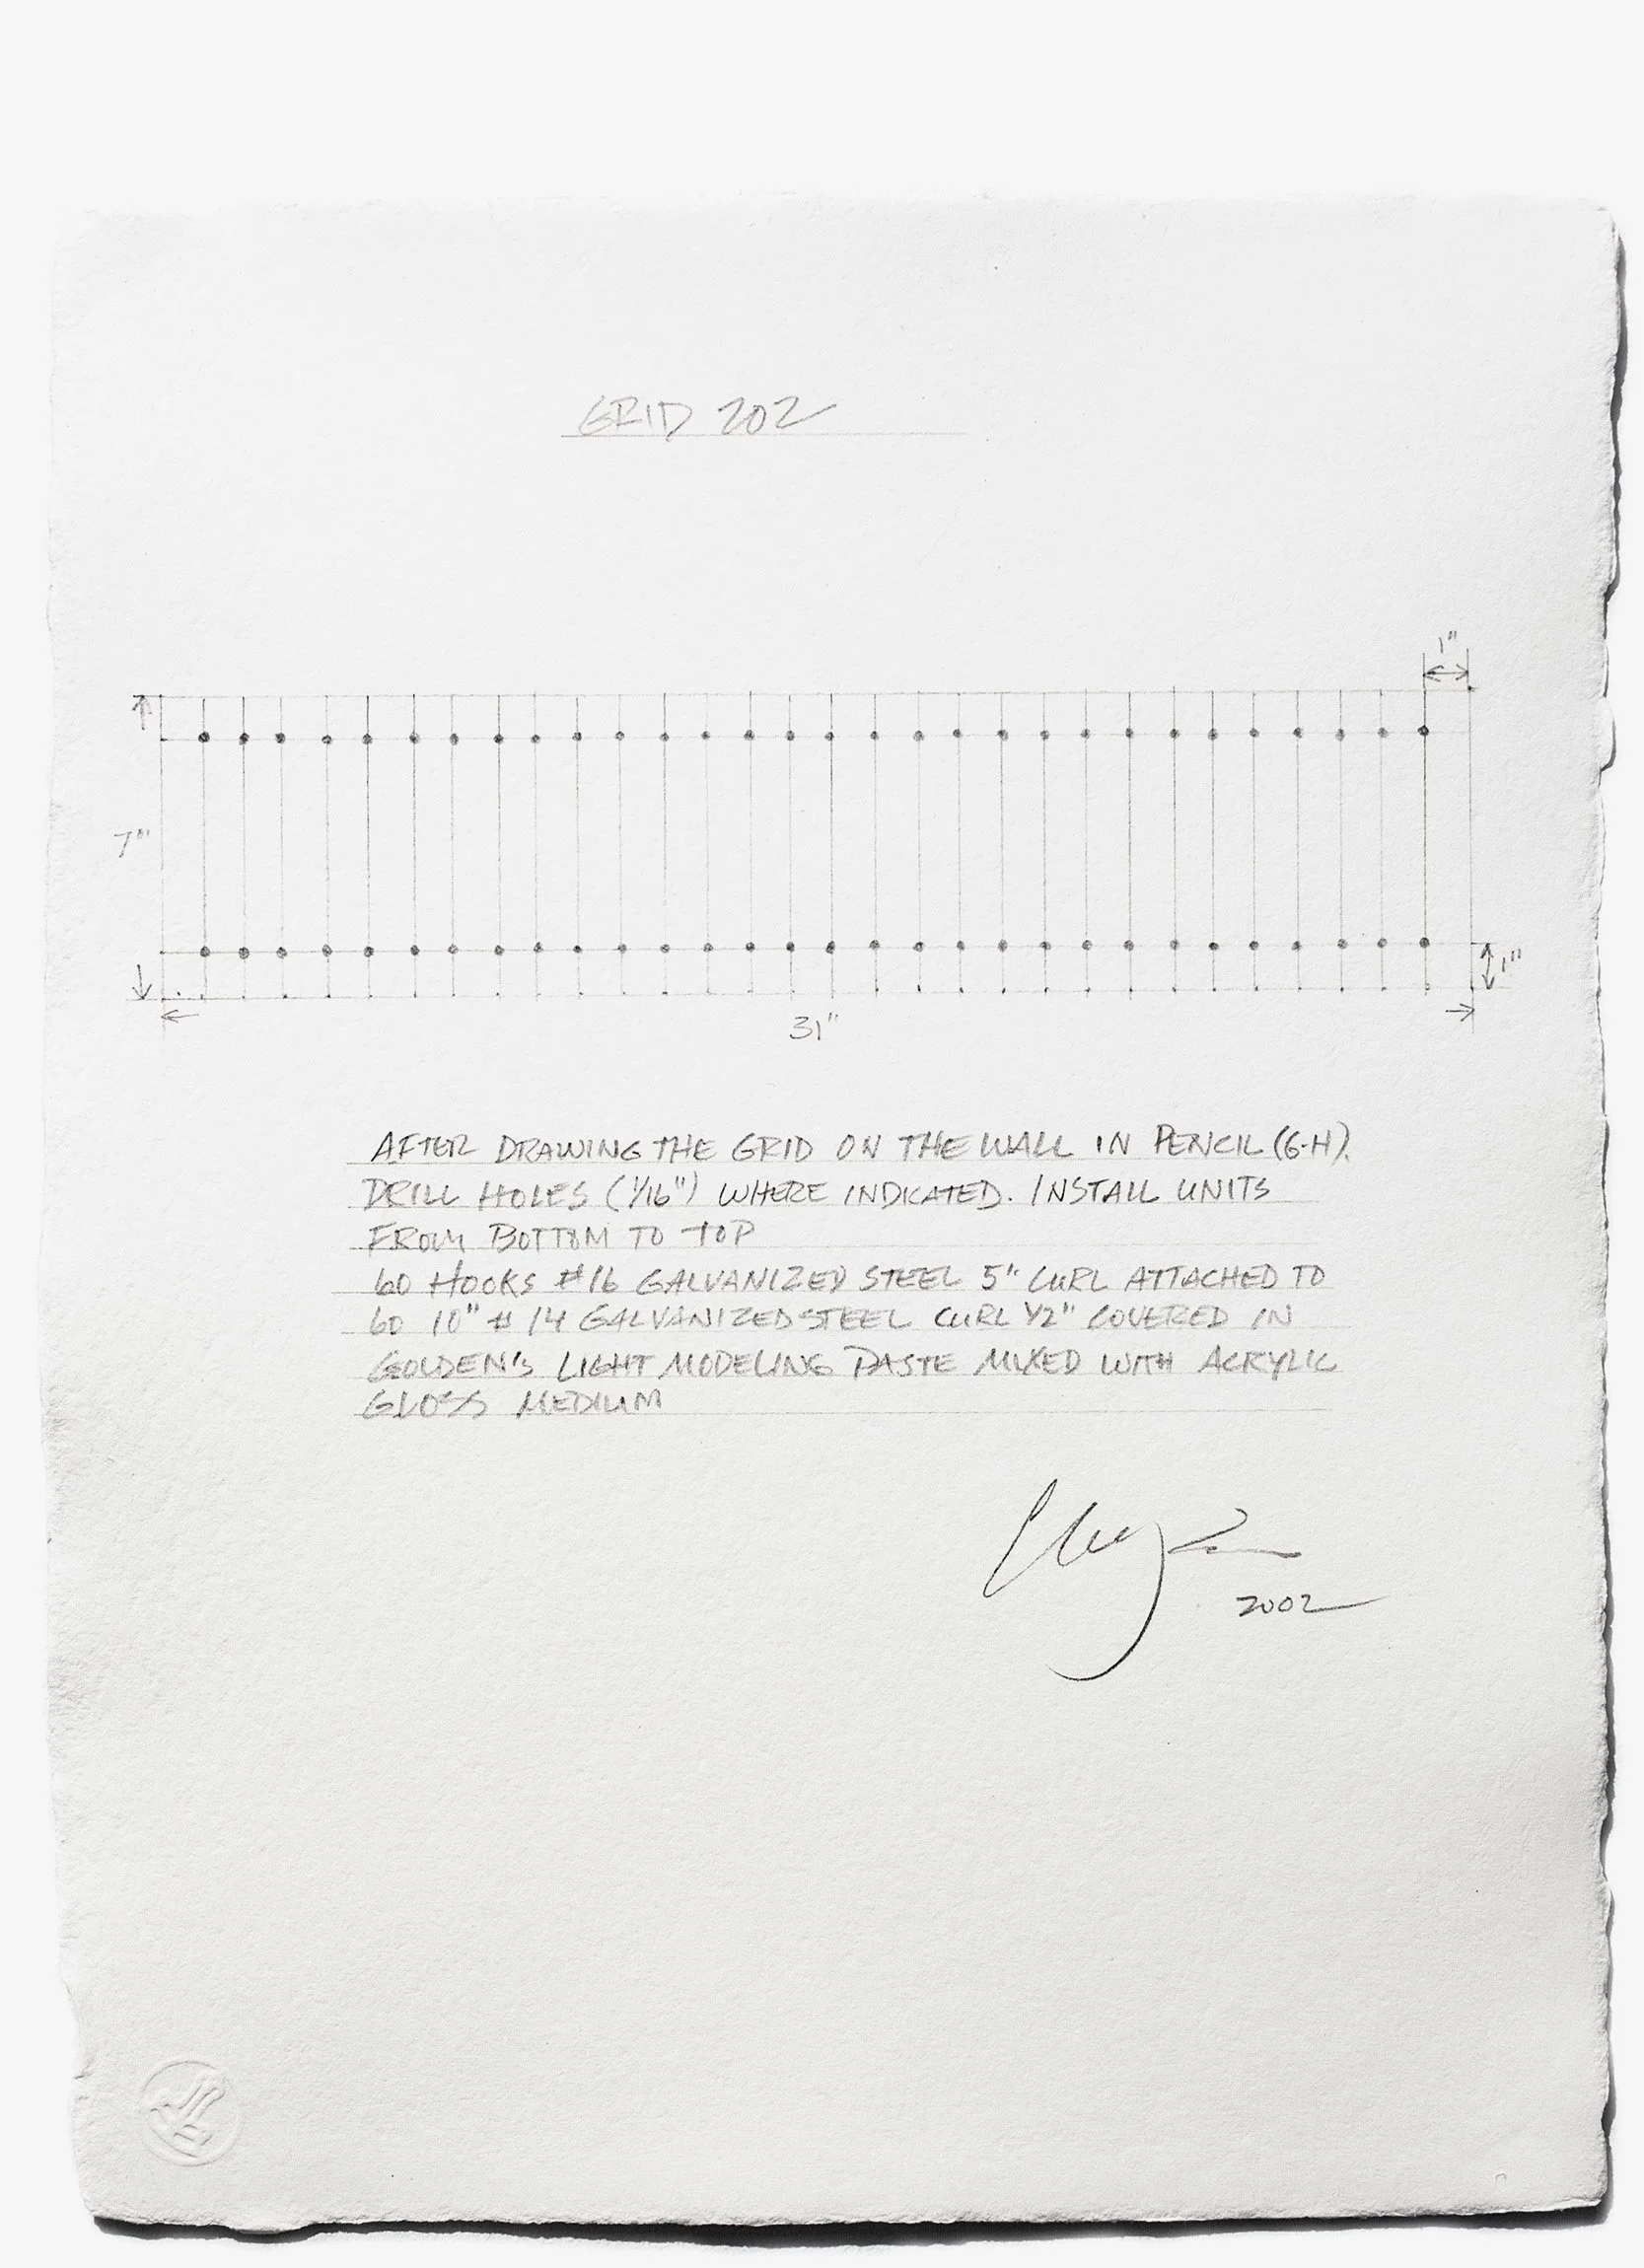 GRID 202
1"
7"
1"
31"
AFTER DRAWING THE GRID ON THE WALL IN PENCIL (6-H).
DRILL HOLES (1/16") WHERE INDICATED. INSTALL UNITS
FROM BOTTOM TO TOP
60 HOOKS #16 GALVANIZED STEEL 5" CURL ATTACHED TO
60 10" #14 GALVANIZED STEEL CURL 1/2" COVERED IN
GOLDEN'S LIGHT MODELING PASTE MIXED WITH ACRYLIC
GLOSS MEDIUM
2002